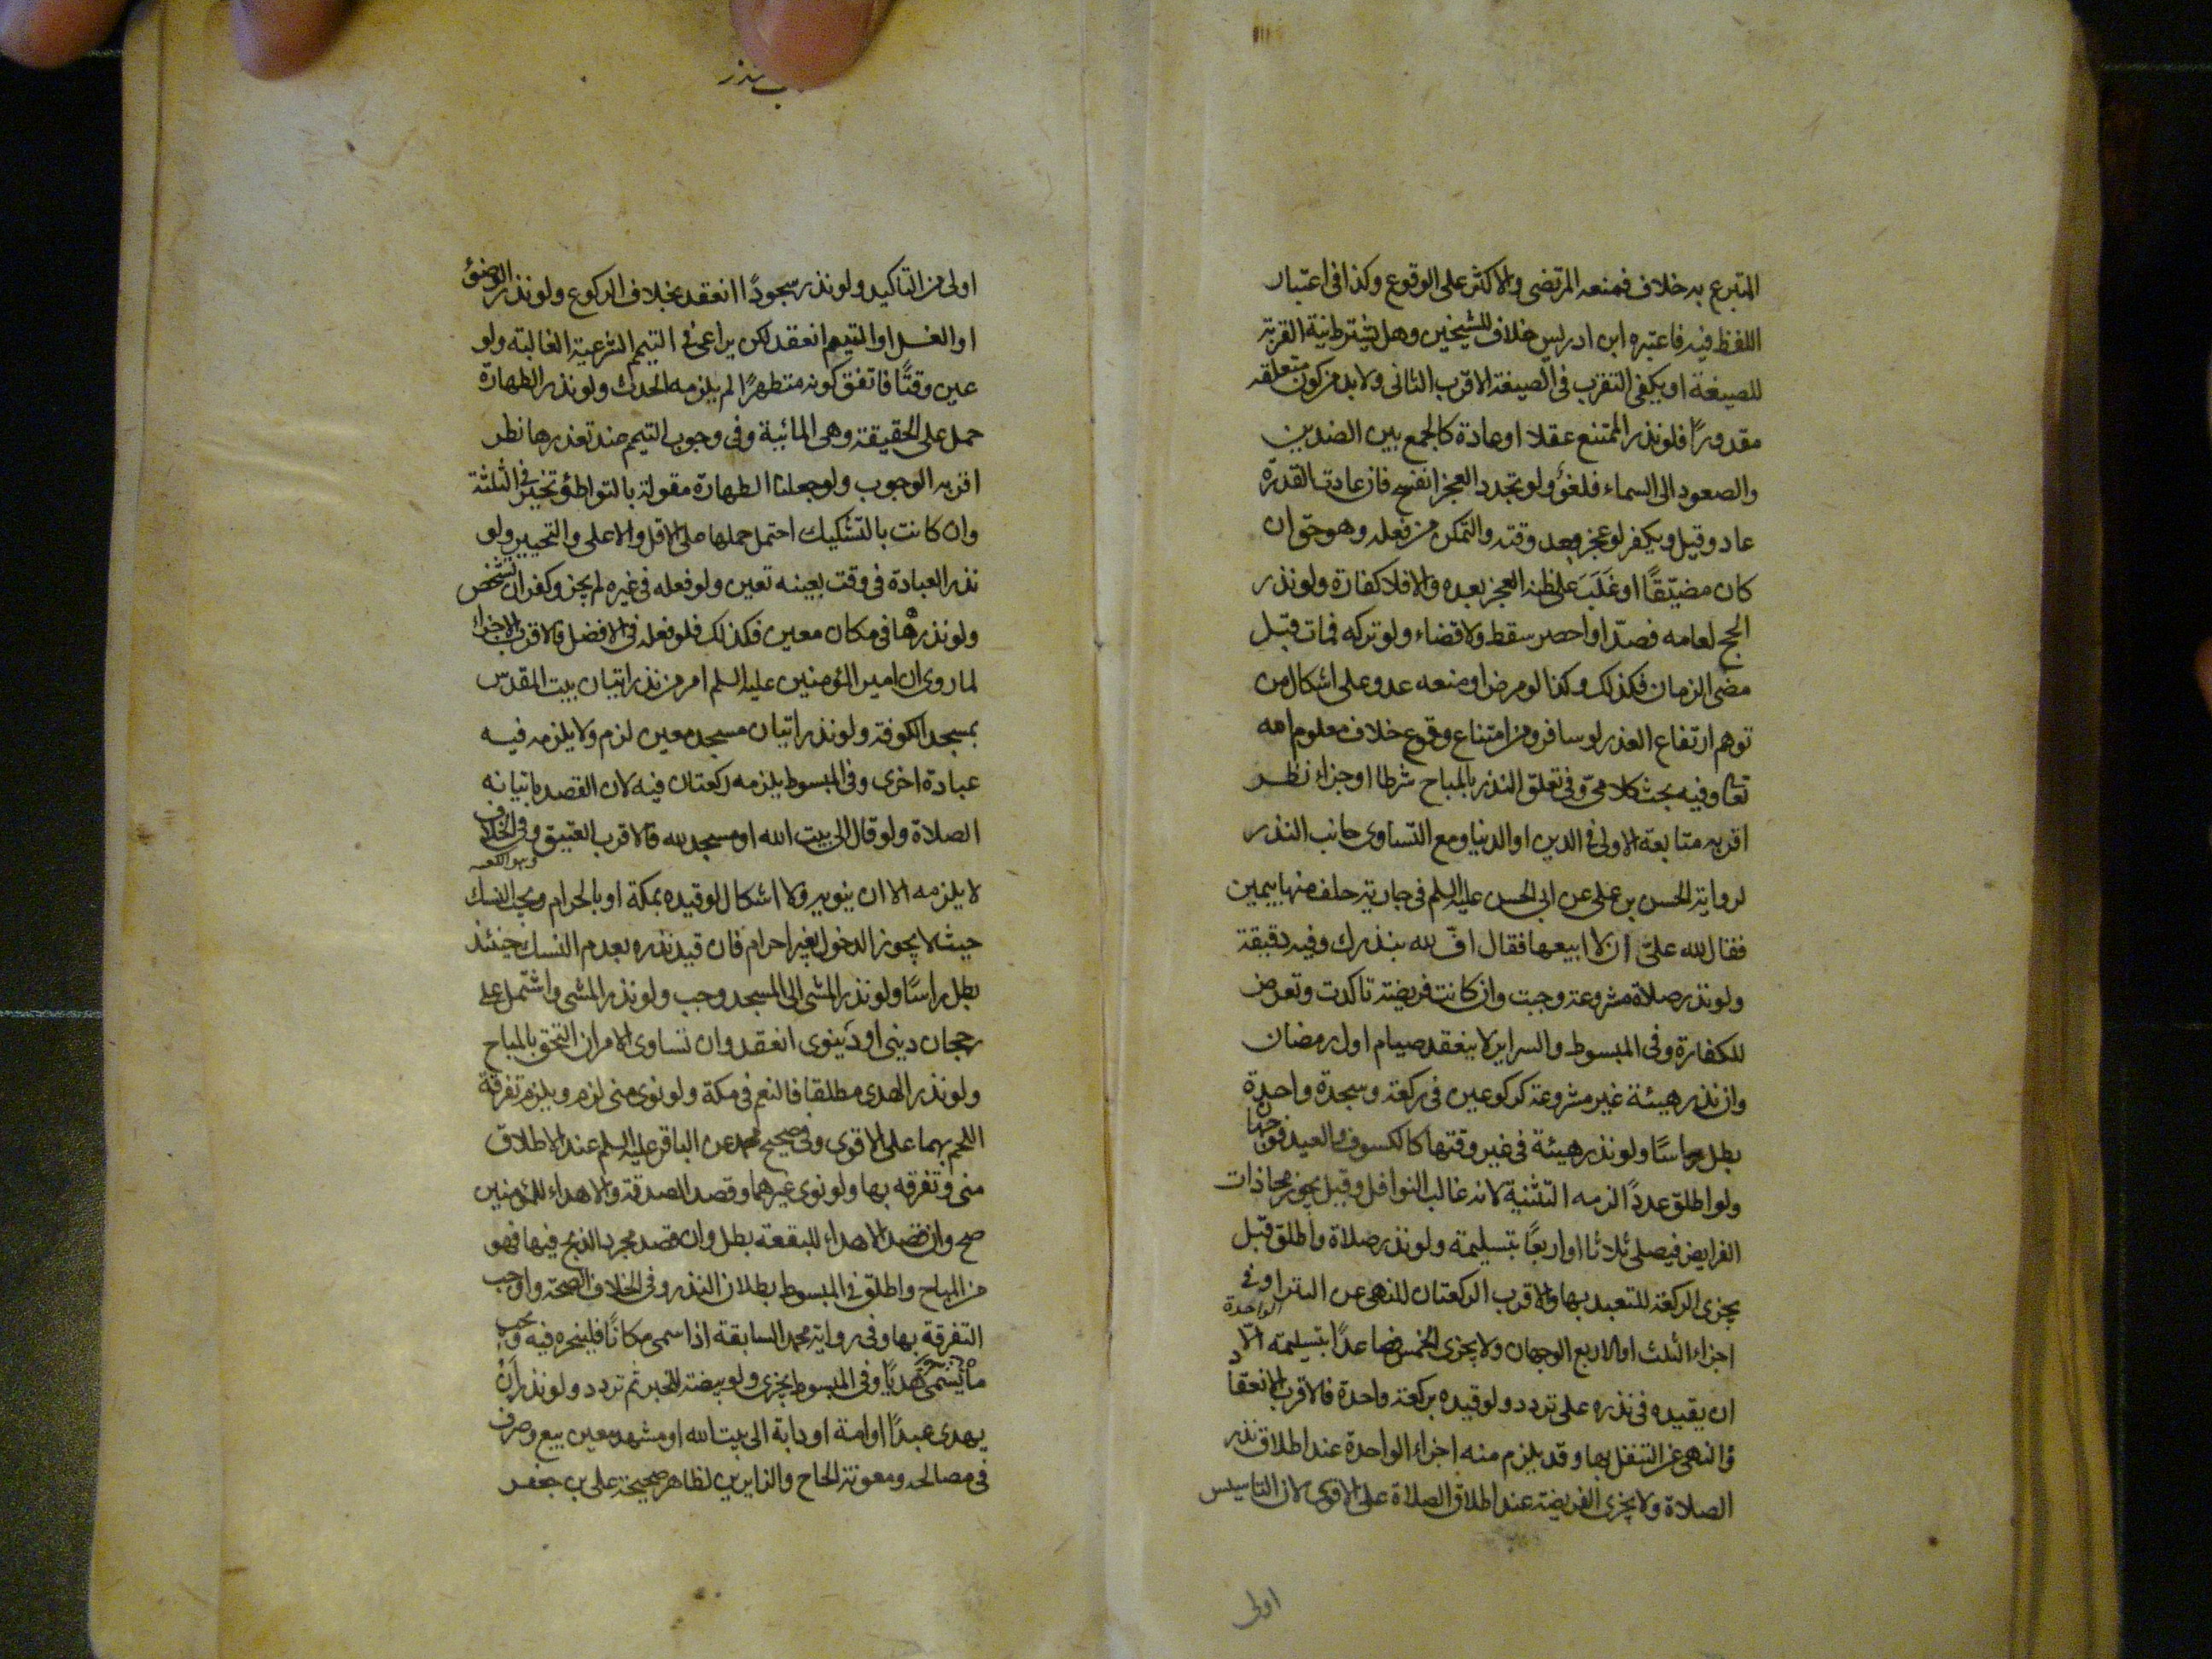 المتبرع به خلاف فمنعه المرتضى والاكثر على الوقوع وكذا فى اعتبار
اللفظ فيه فاعتبره ابن ادريس خلافا للشيخين وهل يشترط نية القربة
للصيغة او يكفى التقرب فى الصيغة الاقرب الثانى ولا بد من كون متعلقه
مقدورًا فلو نذر الممتنع عقلا او عادة كالجمع بين الضدين
والصعود الى السماء فلغوٌ ولو تجدد العجز انفسخ فان عادت القدرة
عاد وقيل ويكفر لو عجز بعد وقته والتمكن من فعله وهو حق ان
كان مضيّقًا او غَلَبَ على ظنه العجز بعده والا فلا كفارة ولو نذر
الحج لعامه فصدّ او احصر سقط ولا قضاء ولو تركه فمات قبل
مضى الزمان فكذلك وكذا لو مرض او منعه عدو على اشكال من
توهم ارتفاع العذر لو سافر ومن امتناع وقوع خلاف معلوم الله
تعالى وفيه بحث كلامىّ وفى تعلق النذر بالمباح شرطا او جزاء نظر
اقربه متابعة الاولى فى الدين او الدنيا ومع التساوى جانب النذر
لرواية الحسن بن على عن ابى الحسن عليه السلم فى جارية حلف منها بيمين
فقال لله علىّ ان لا ابيعها فقال اوفّ لله بنذرك وفيه دقيقة
ولو نذر صلاة مشروعة وجبت وان كانت فريضة تاكدت وتعرض
للكفارة وفى المبسوط والسراير لا ينعقد صيام اول رمضان
وان نذر هيئة غير مشروعة كركوعين فى ركعة وسجدة واحدة
بطل راسًا ولو نذر هيئة فى غير وقتها كالكسوف والعيد فوجهان
ولو اطلق عددًا لزمه التثنية لانه غالب النوافل وقيل يجوز محاذات
الفرايض فيصلى ثلاثا او اربعًا بتسليمة ولو نذر صلاة واطلق قيل
يجزى الركعة للتعبد بها والاقرب الركعتان للنهى عن البتراء وفى
اجزاء الثلث او الاربع الوجهان ولا يجزى الخمس فصاعدًا بتسليمة الّا
الواحدة
ان يقيده فى نذره على تردد ولو قيده بركعة واحدة فالاقرب الانعقاد
والنهى عن التنفل بها وقد يلزم منه اجزاء الواحدة عند اطلاق نذر
الصلاة ولا يجزى الفريضة عند اطلاق الصلاة على الاقوى لان التاسيس
اولى
اولى من التاكيد ولو نذر سجودًا انعقد بخلاف الركوع ولو نذر الوضوء
او الغسل او التيمم انعقد لكن يراعى فى التيمم الشرعية الغالبة ولو
عين وقتًا فاتفق كونه متطهرًا لم يلزمه الحدث ولو نذر الطهارة
حمل على الحقيقة وهى المائية وفى وجوب التيمم عند تعذرها نظر
اقربه الوجوب ولو جعلنا الطهارة مقولة بالتواطؤ تخير فى الثلثة
وان كانت بالتشكيك احتمل حملها على الاقل والاعلى والتخيير ولو
نذر العبادة فى وقت بعينه تعين ولو فعله فى غيره لم يجز وكفر ان تشخص
ولو نذرها فى مكان معين فكذلك فلو فعله فى الافضل فالاقرب الاجزاء
لما روى ان امير المؤمنين عليه السلم امر من نذر اتيان بيت المقدس
بمسجد الكوفة ولو نذر اتيان مسجد معين لزم ولا يلزمه فيه
عبادة اخرى وفى المبسوط يلزمه ركعتان فيه لان القصد باتيانه
الصلاة ولو قال الى بيت الله او مسجد لله فالاقرب العتيق وفى الخلاف
لا يلزمه الا ان ينويه ولا اشكال لو قيده بمكة او بالحرام ويجب النسك
حيث لا يجوز الدخول بغير احرام فان قيد نذره بعدم النسك حينئذ
بطل راسًا ولو نذر المشى الى المسجد وجب ولو نذر المشى واشتمل على
رجحان دينى او دنيوى انعقد وان تساوى الامران التحق بالمباح
ولو نذر الهدى مطلقا فالنعم فى مكة ولو نوى منى لزم ويلزم تفرقة
اللحم بهما على الاقوى وفى صحيح محمد عن الباقر عليه السلم عند الاطلاق
منى وتفرقه بها ولو نوى غيرهما وقصد الصدقة والاهداء للمؤمنين
صح وان قصد الاهداء للبقعة بطل وان قصد مجرد الذبح فيها فهو
من المباح واطلق فى المبسوط بطلان النذر وفى الخلاف الصحة واوجب
التفرقة بها وفى رواية محمد السابقة اذا سمى مكانًا فلينحره فيه ويجب
ما يسمى هديًا وفى المبسوط يجزى ولو بيضة للخبر ثم تردد ولو نذر اَنْ
يهدى عبدًا او امة او دابة الى بيت الله او مشهد معين بيع وصرف
فى مصالحه ومعونة الحاج والزايرين لظاهر صحيحة على بن جعفر